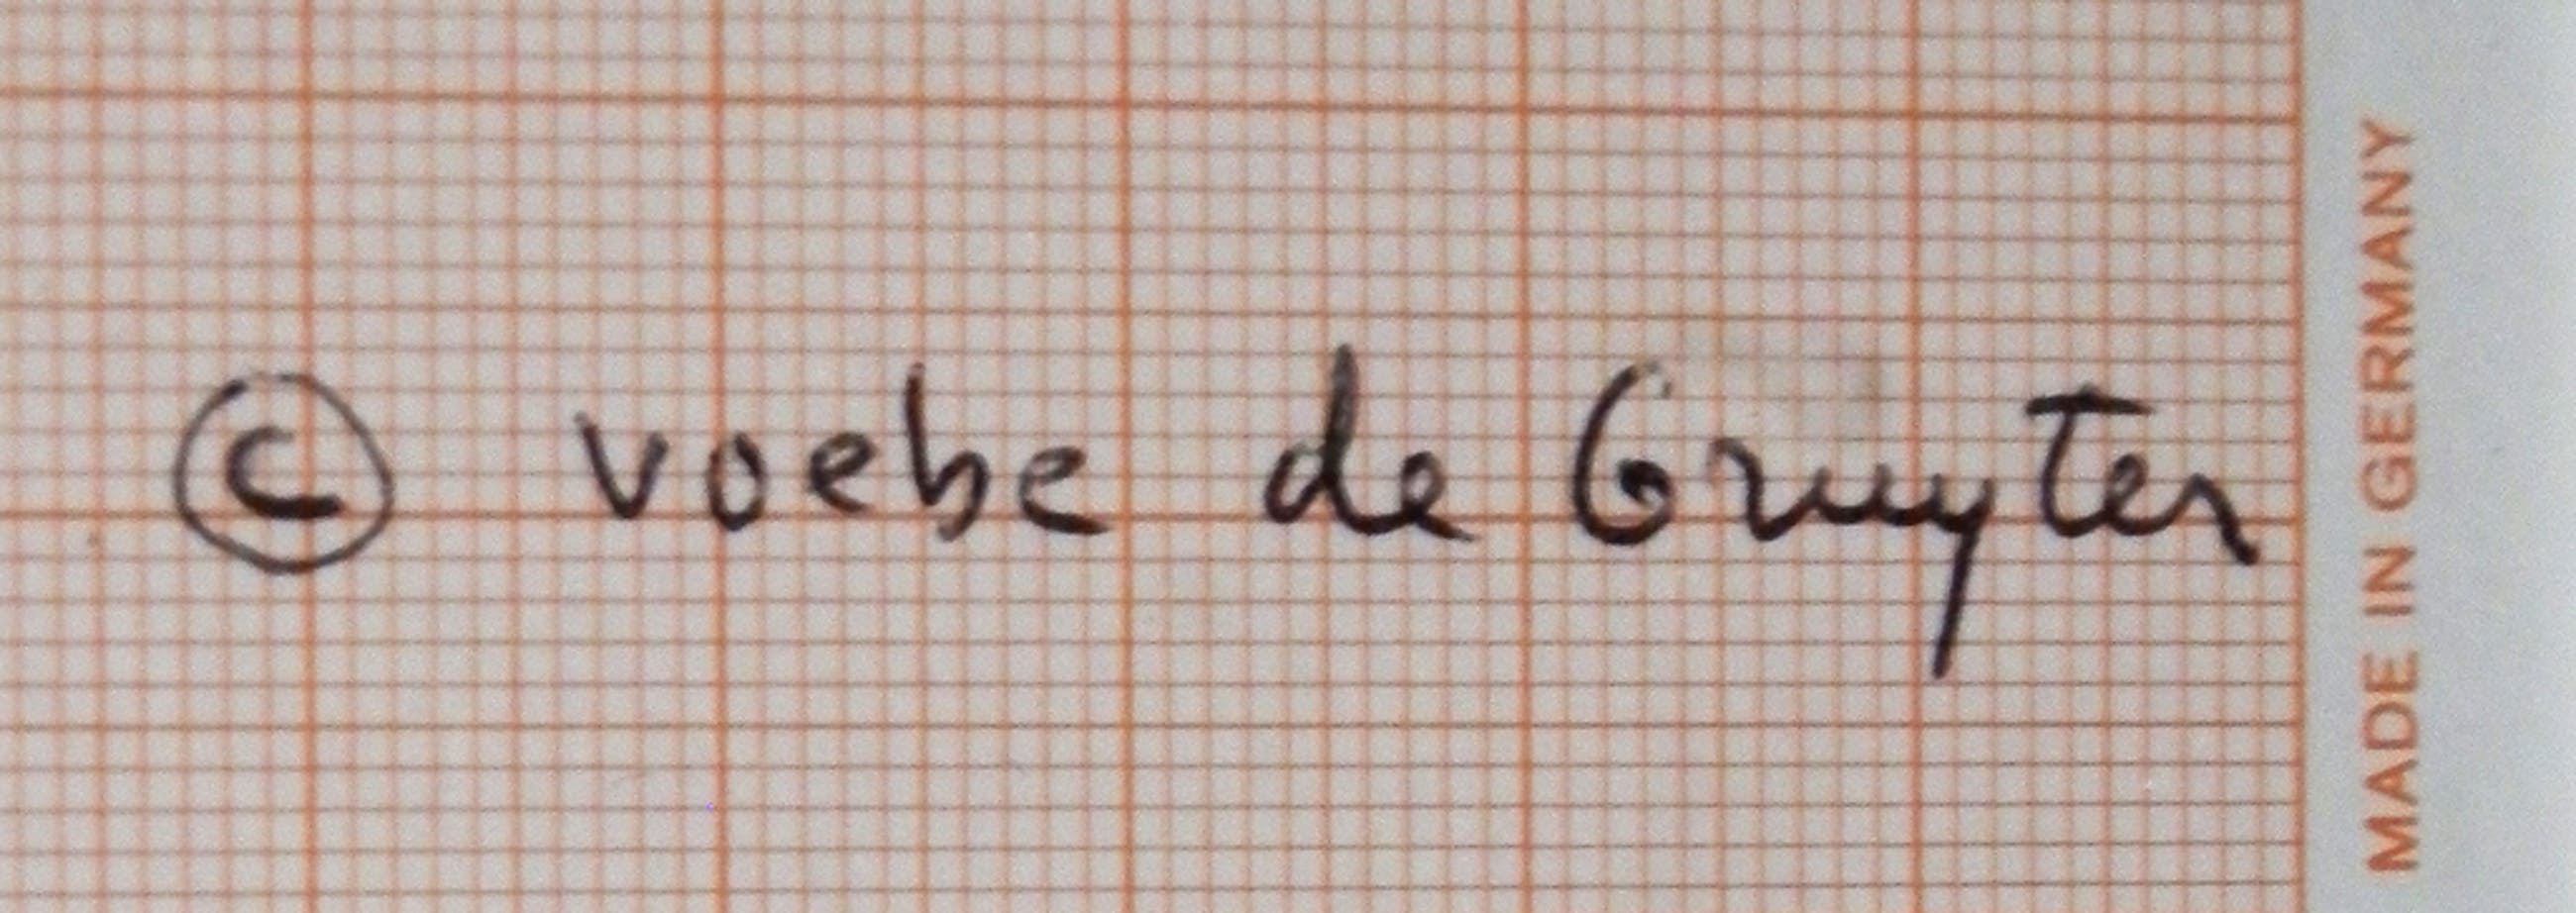 © Voebe de Gruyter
MADE IN GERMANY